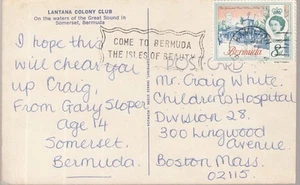 LANTANA COLONY CLUB
On the waters of the Great Sound in
Somerset, Bermuda
I hope this
will chear you
up Craig,
From Gary Sloper
Age 14
Somerset.
Bermuda.
COME TO BERMUDA
THE ISLES OF BEAUTY
Bermuda
8d
POSTCARD
Mr. Craig White.
Childrens Hospital
Division 28.
300 Lingwood
Avenue
Boston Mass.
02115.